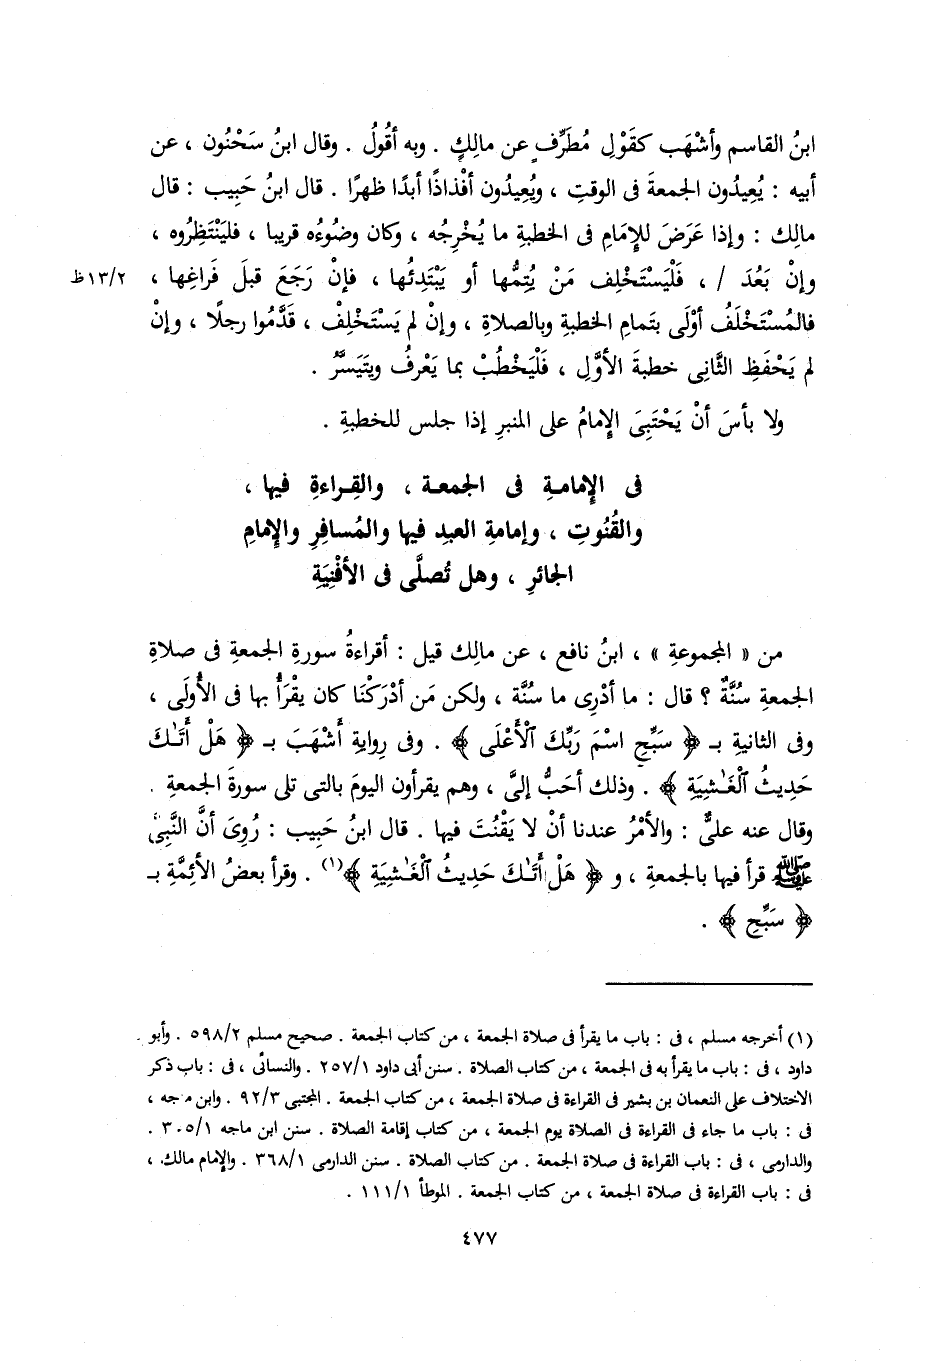 ابنُ القاسم وأشْهَب كقَوْلِ مُطَرِّفٍ عن مالِكٍ . وبه أقُولُ . وقال ابنُ سَحْنُون ، عن
أبيه : يُعِيدُون الجمعةَ فى الوقتِ ، ويُعِيدُون أفْذاذًا أبدًا ظهرًا . قال ابنُ حَبِيب : قال
مالِك : وإذا عَرَضَ للإِمَامِ فى الخطبةِ ما يُخْرِجُه ، وكان وضُوءُه قريبا ، فليَنْتَظِرُوه ،
وإنْ بَعُدَ / ، فَلْيَسْتَخْلِف مَنْ يُتِمُّها أو يَبْتَدِئُها ، فإنْ رَجَعَ قبلَ فَراغِها ، ١٣/٢ظ
فالمُسْتَخْلَفُ أوْلَى بتَمامِ الخطبةِ وبالصلاةِ ، وإنْ لم يَسْتَخْلِفْ ، قَدَّمُوا رجلًا ، وإنْ
لم يَحْفَظِ الثَّانِى خطبةَ الأوَّلِ ، فَلْيَخْطُبْ بما يَعْرِفُ ويتَيَسَّرُ .
ولا بأسَ أنْ يَحْتَبِىَ الإِمامُ على المنبرِ إذا جلس للخطبةِ .
فى الإِمامةِ فى الجمعة ، والقِراءةِ فيها ،
والقُنُوتِ ، وإمامةِ العبدِ فيها والمُسافِرِ والإِمامِ
الجائرِ ، وهل تُصلَّى فى الأفْنِيَةِ
من « المجموعةِ » ، ابنُ نافع ، عن مالِك قيل : أقراءةُ سورةِ الجمعةِ فى صلاةِ
الجمعةِ سُنَّةٌ ؟ قال : ما أدْرِى ما سُنَّة ، ولكن مَن أدْرَكْنَا كان يقْرَأُ بها فى الأُولَى ،
وفى الثانيةِ بـ ﴿ سَبِّحِ اسْمَ رَبِّكَ ٱلْأَعْلَى ﴾ . وفى رِوايةِ أشْهَبَ بـ ﴿ هَلْ أَتَىٰكَ
حَدِيثُ ٱلْغَـٰشِيَةِ ﴾ . وذلك أحَبُّ إلىَّ ، وهم يقرأون اليومَ بالتى تلى سورةَ الجمعةِ .
وقال عنه علىٌّ : والأمْرُ عندنا أنْ لا يَقْنُتَ فيها . قال ابنُ حَبِيب : رُوِىَ أنَّ النَّبِىَّ
ﷺ قرأ فيها بالجمعةِ ، و ﴿ هَلْ أَتَىٰكَ حَدِيثُ ٱلْغَـٰشِيَةِ ﴾(١) . وقرأ بعضُ الأئِمَّةِ بـ
﴿ سَبِّحِ ﴾ .
(١) أخرجه مسلم ، فى : باب ما يقرأ فى صلاة الجمعة ، من كتاب الجمعة . صحيح مسلم ٥٩٨/٢ . وأبو
داود ، فى : باب ما يقرأ به فى الجمعة ، من كتاب الصلاة . سنن أبى داود ٢٥٧/١ . والنسائى ، فى : باب ذكر
الاختلاف على النعمان بن بشير فى القراءة فى صلاة الجمعة ، من كتاب الجمعة . المجتبى ٩٢/٣ . وابن ماجه ،
فى : باب ما جاء فى القراءة فى الصلاة يوم الجمعة ، من كتاب إقامة الصلاة . سنن ابن ماجه ٣٠٥/١ .
والدارمى ، فى : باب القراءة فى صلاة الجمعة . من كتاب الصلاة . سنن الدارمى ٣٦٨/١ . والإمام مالك ،
فى : باب القراءة فى صلاة الجمعة ، من كتاب الجمعة . الموطأ ١١١/١ .
٤٧٧